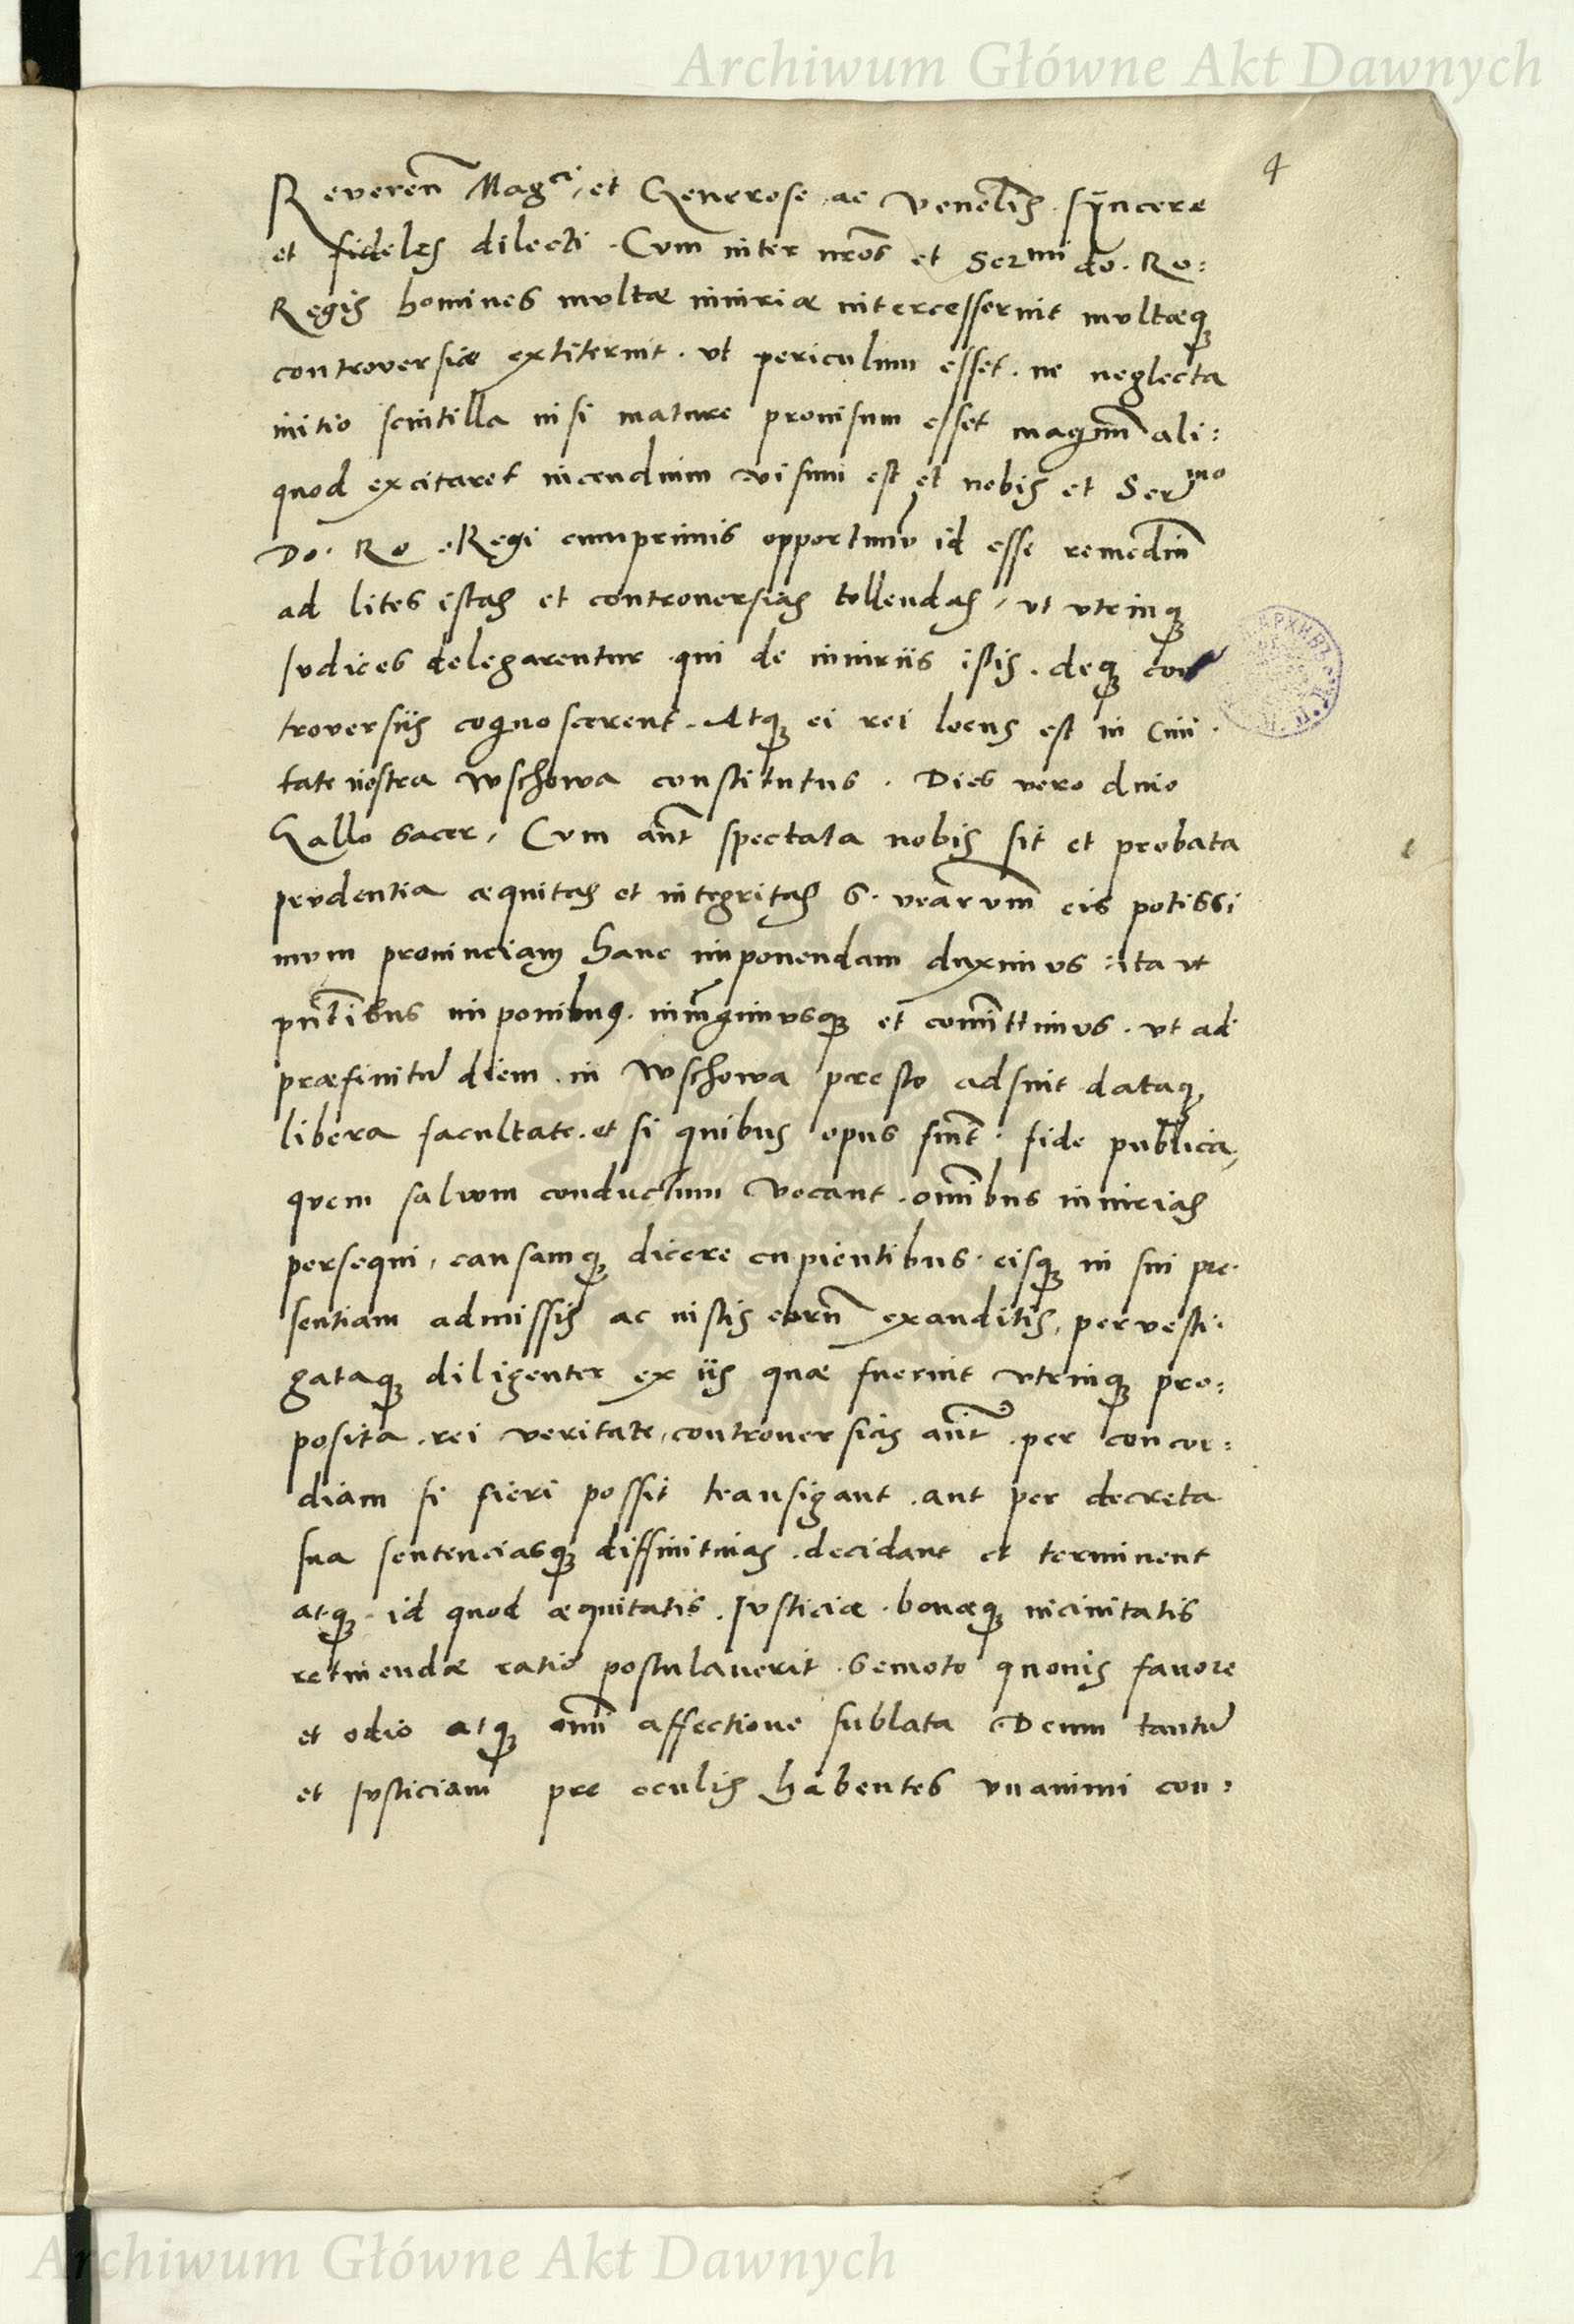 Archiwum Główne Akt Dawnych
4
Reveren̄ Mag^ci, et Generose ac Venel̄is syncere
et fideles dilecti. Cum inter nr̄os et Ser^mi do. Ro:
Regis homines multæ iniuriæ intercesserint multæq
controversiæ extiterint. ut periculum esset. ne neglecta
initio scintilla nisi mature provisum esset magnum̄ ali:
quod excitaret incendium visum est et nobis et Ser^mo
Do. Ro Regi cumprimis opportunū id esse remediū
ad lites istas et controversias tollendas, ut utrinq
Iudices delegarentur qui de iniuriis istis. deq con
troversiis cognoscerent. Atq ei rei locus est in Civi.
tate nostra Wschowa constitutus. Dies vero divo
Gallo sacer, Cum aūt spectata nobis sit et probata
prudentia æquitas et integritas S. vr̄arum eis potissi
mum provinciam hanc imponendam duximus ita ut
pn̄tibus imponimus. iniūgimusq et com̄ittimus. ut ad
præfinitū diem. in Wschowa presto adsint dataq
libera facultate. et si quibus opus sint. fide publica,
quem salvum conductum vocant. om̄ibus iniurias
persequi, causamq dicere cupientibus. eisq in sui pre.
sentiam admissis ac iustis eorū exauditis, pervesti.
gataq diligenter ex iis quæ fuerint utrinq pro:
posita. rei veritate, controversias aūt. per concor:
diam si fieri possit transigant. aut per decreta
sua sentenciasq diffinitivas. decidant et terminent
atq. id quod æquitatis. Iusticiæ. bonæq vicinitatis
retinendæ ratio postulaverit. Semoto quovis favore
et odio atq om̄i affectione sublata Deum tantū
et Iusticiam pre oculis habentes unanimi con:
Archiwum Główne Akt Dawnych